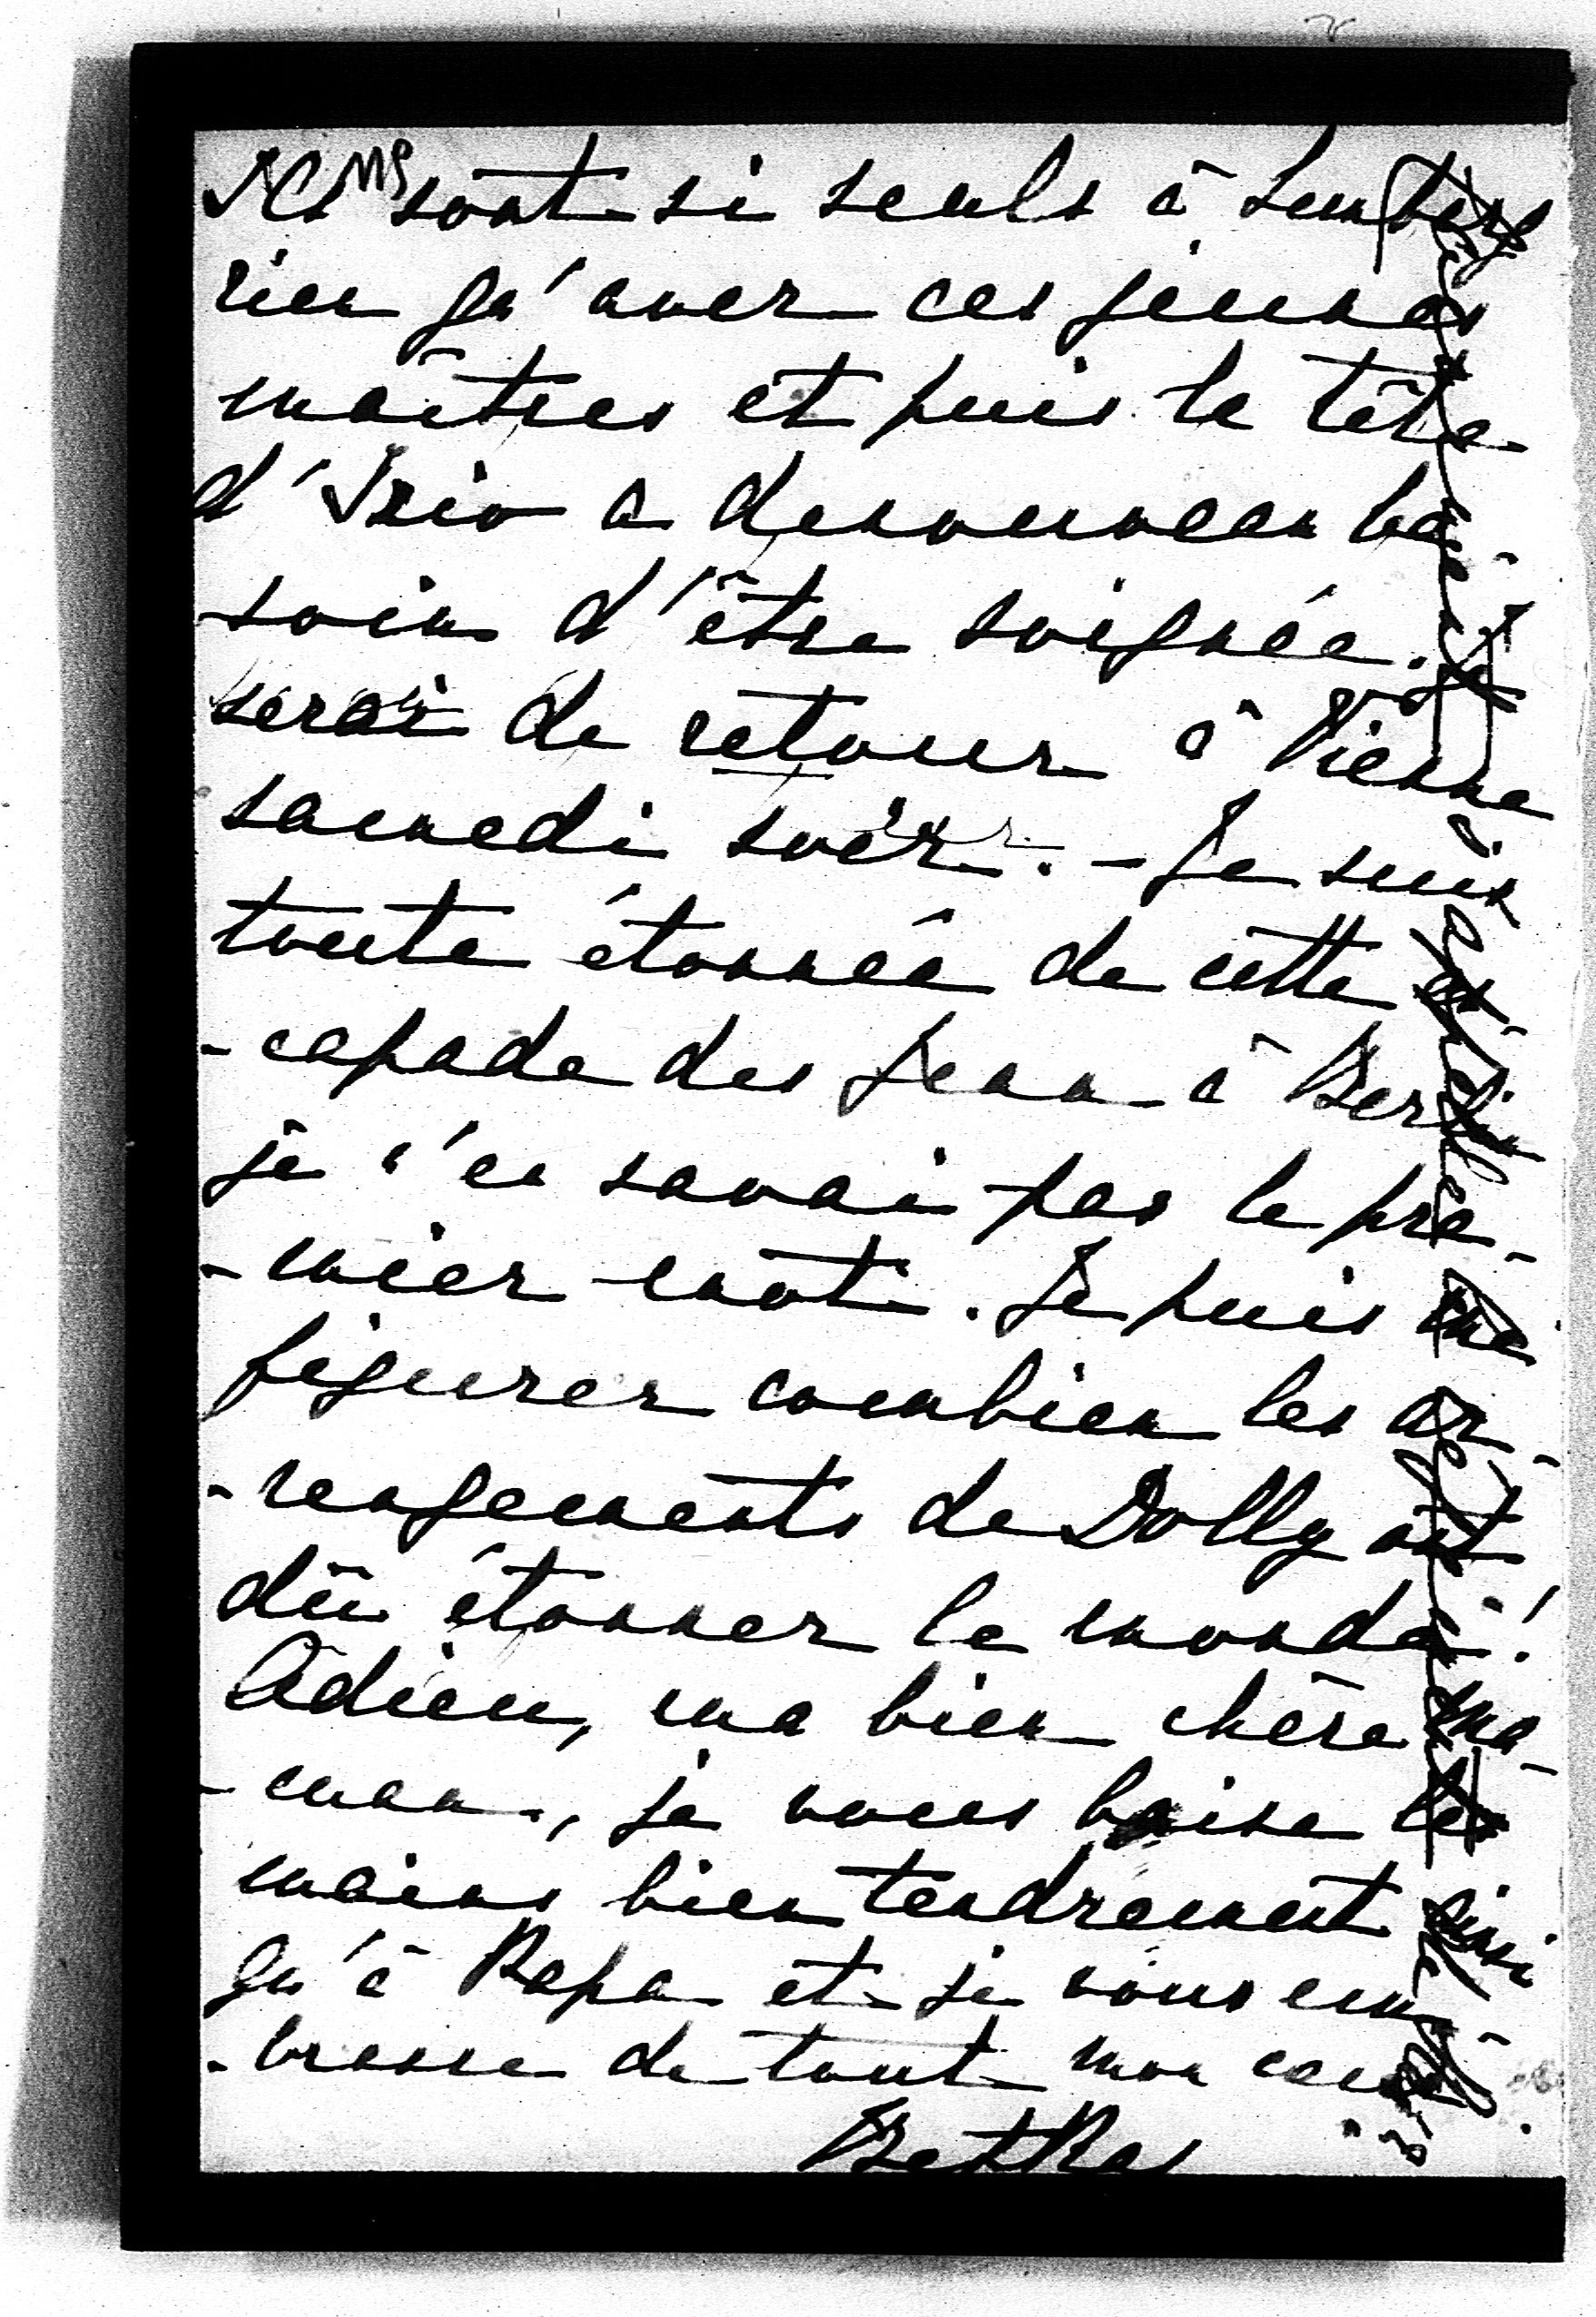 Ils sont si seuls à Lemberg
rien qu'avec ces jeunes
maîtres et puis la tête
d'Izio a denouveau be
soin d'être soignée. Je
serai de retour à Vienne
samedi soir. - Je suis
toute étonnée de cette es-
-capade des Jean à Berlin
je n'en savai pas le pre-
-mier mot. Je puis me
figurer combien les ar-
-rengements de Dolly ont
dû étonner le monde!
Adieu, ma bien chère ma-
-man, je vous baise les
mains bien tendrement ainsi
qu'à Papa et je vous em-
-brasse de tout mon cœur.
Betka